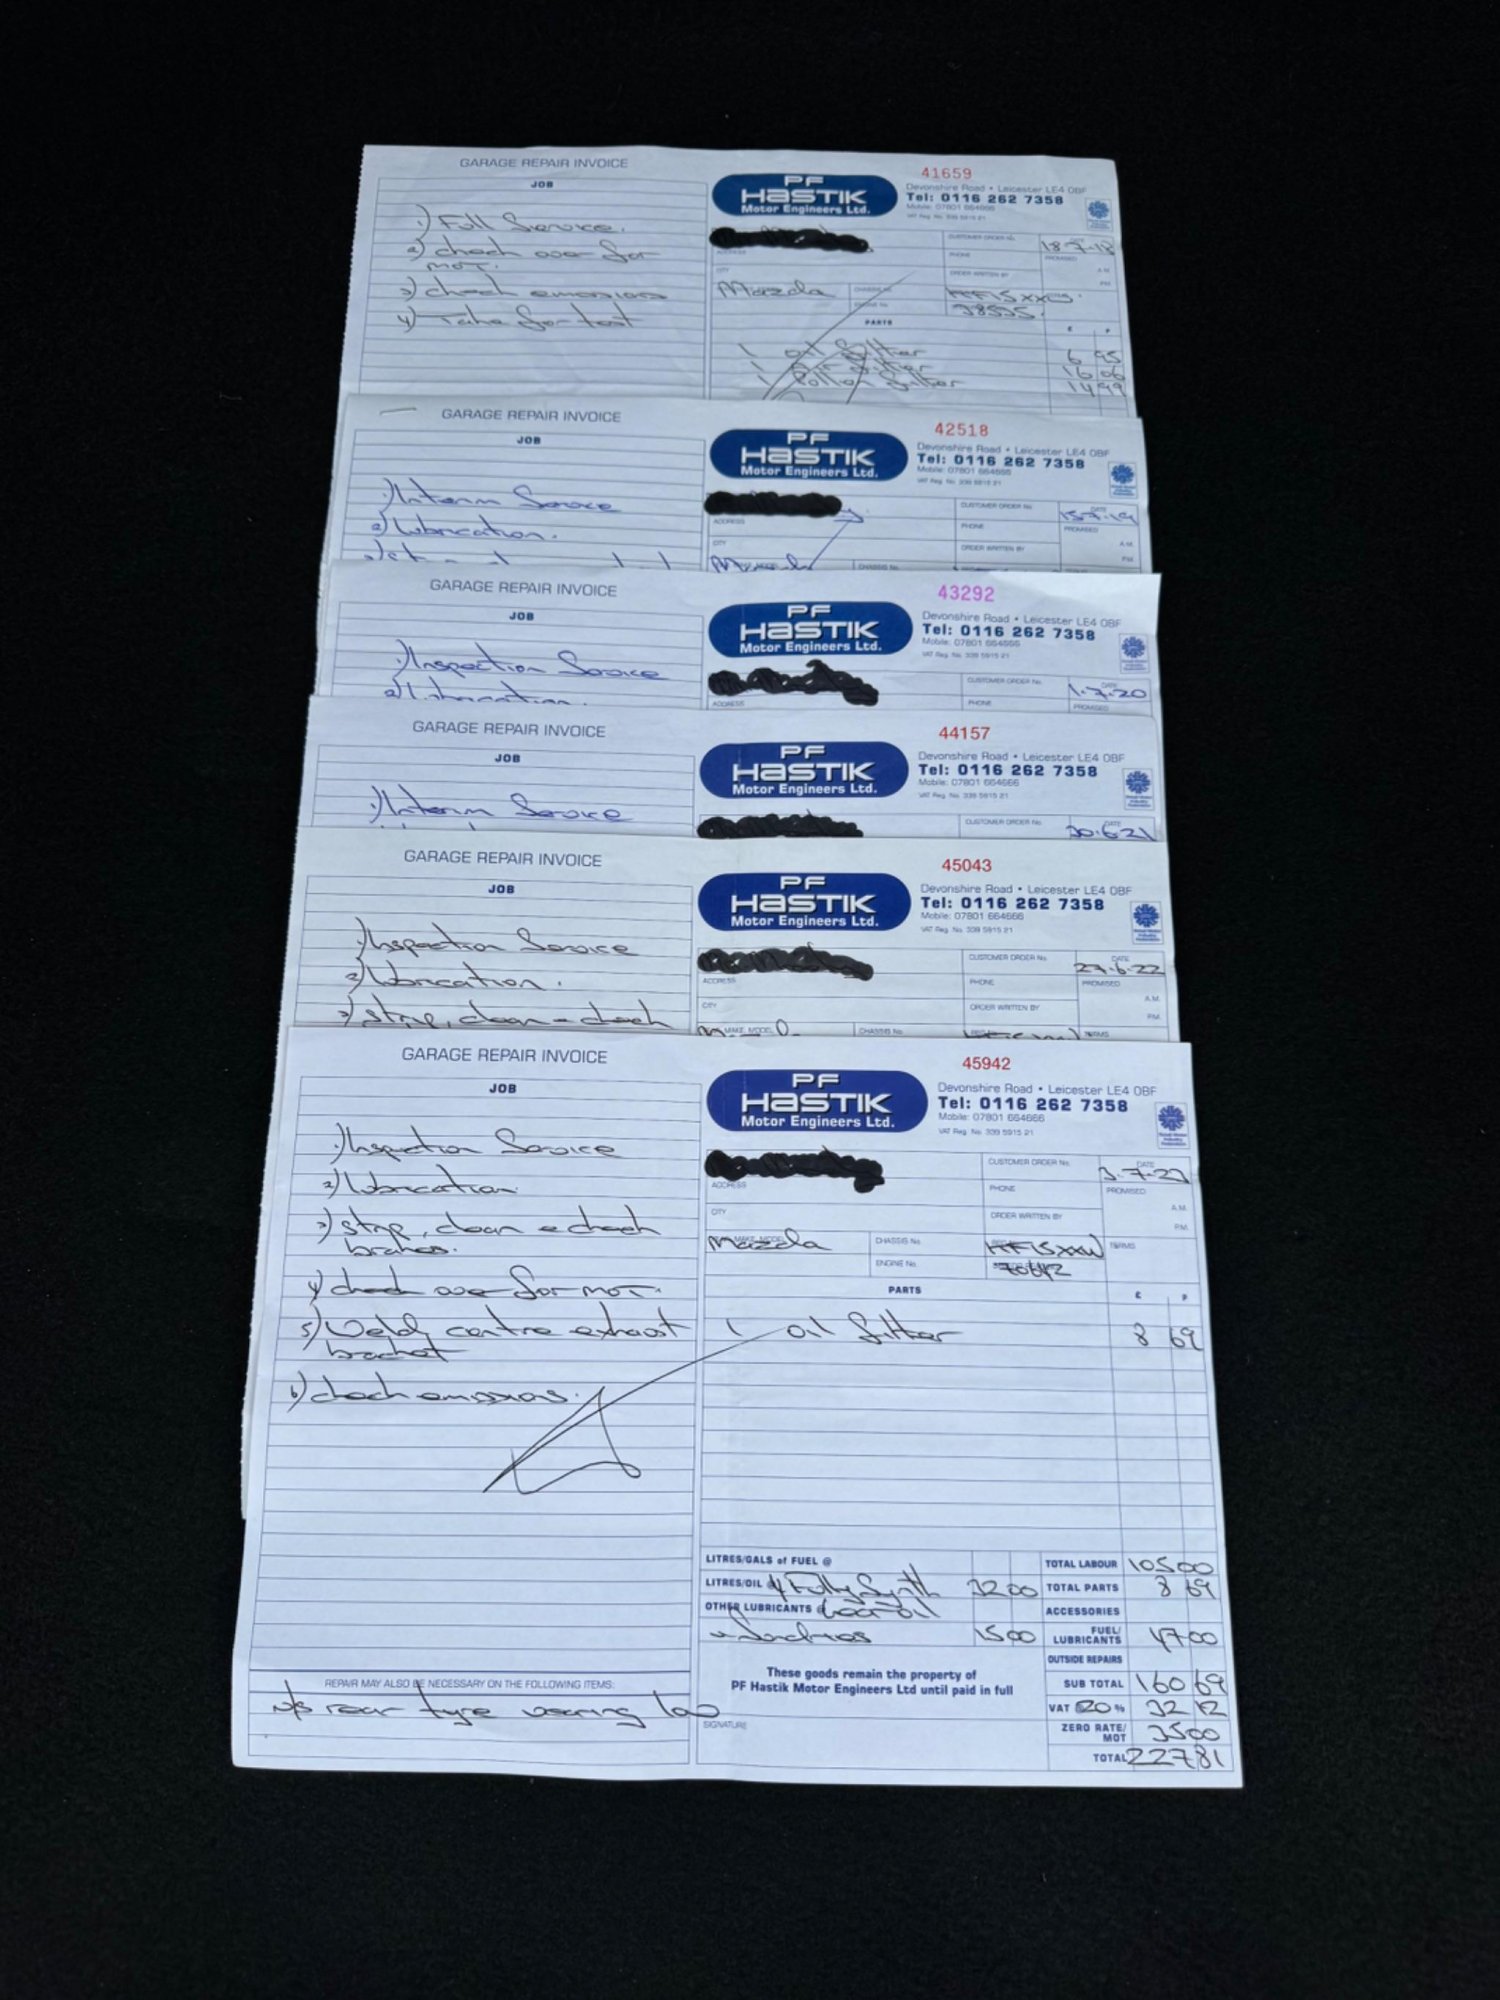 GARAGE REPAIR INVOICE
JOB
1) Full Service.
2) check over for
MOT.
3) check emissions
4) Take for test
PF
HASTIK
Motor Engineers Ltd.
41659
Devonshire Road • Leicester LE4 0BF
Tel: 0116 262 7358
Mobile: 07801 664666
VAT Reg. No. 339 5915 21
CUSTOMER ORDER No.
18-7-18
ADDRESS
PHONE
PROMISED
A.M.
CITY
ORDER WRITTEN BY
P.M.
Mazda
CHASSIS No.
ENGINE No.
38525
PARTS
£ P
1 oil filter 6 95
1 filter 16 06
1 Pollen filter 14 99
GARAGE REPAIR INVOICE
JOB
1) Interim Service
2) Lubrication.
PF
HASTIK
Motor Engineers Ltd.
42518
Devonshire Road • Leicester LE4 0BF
Tel: 0116 262 7358
Mobile: 07801 664666
VAT Reg. No. 339 5915 21
CUSTOMER ORDER No.
DATE
15-7-19
ADDRESS
PHONE
PROMISED
A.M.
CITY
ORDER WRITTEN BY
P.M.
Mazda
CHASSIS No.
GARAGE REPAIR INVOICE
JOB
1) Inspection Service
2) Lubrication.
PF
HASTIK
Motor Engineers Ltd.
43292
Devonshire Road • Leicester LE4 0BF
Tel: 0116 262 7358
Mobile: 07801 664666
VAT Reg. No. 339 5915 21
CUSTOMER ORDER No.
DATE
1-7-20
ADDRESS
PHONE
PROMISED
GARAGE REPAIR INVOICE
JOB
1) Interim Service
PF
HASTIK
Motor Engineers Ltd.
44157
Devonshire Road • Leicester LE4 0BF
Tel: 0116 262 7358
Mobile: 07801 664666
VAT Reg. No. 339 5915 21
CUSTOMER ORDER No.
DATE
30-6-21
GARAGE REPAIR INVOICE
JOB
1) Inspection Service
2) Lubrication.
3) strip, clean & check
PF
HASTIK
Motor Engineers Ltd.
45043
Devonshire Road • Leicester LE4 0BF
Tel: 0116 262 7358
Mobile: 07801 664666
VAT Reg. No. 339 5915 21
CUSTOMER ORDER No.
DATE
27-6-22
ADDRESS
PHONE
PROMISED
A.M.
CITY
ORDER WRITTEN BY
P.M.
MAKE, MODEL
CHASSIS No.
TERMS
GARAGE REPAIR INVOICE
JOB
1) Inspection Service
2) Lubrication
3) strip, clean & check
brakes.
4) check over for MOT.
5) Weld centre exhaust
bracket
6) check emissions.
REPAIR MAY ALSO BE NECESSARY ON THE FOLLOWING ITEMS:
n/s rear tyre wearing low
PF
HASTIK
Motor Engineers Ltd.
45942
Devonshire Road • Leicester LE4 0BF
Tel: 0116 262 7358
Mobile: 07801 664666
VAT Reg. No. 339 5915 21
CUSTOMER ORDER No.
DATE
3-7-23
ADDRESS
PHONE
PROMISED
A.M.
CITY
ORDER WRITTEN BY
P.M.
MAKE, MODEL
Mazda
CHASSIS No.
TERMS
ENGINE No.
70642
PARTS
£ P
1 oil filter 8 69
LITRES/GALS of FUEL @
LITRES/OIL @ 4 Fully Synth 32 00
OTHER LUBRICANTS @ Gear oil
& Sundries 15 00
These goods remain the property of
PF Hastik Motor Engineers Ltd until paid in full
SIGNATURE
TOTAL LABOUR 105 00
TOTAL PARTS 8 69
ACCESSORIES
FUEL/
LUBRICANTS 47 00
OUTSIDE REPAIRS
SUB TOTAL 160 69
VAT @ 20 % 32 12
ZERO RATE/
MOT 35 00
TOTAL 227 81